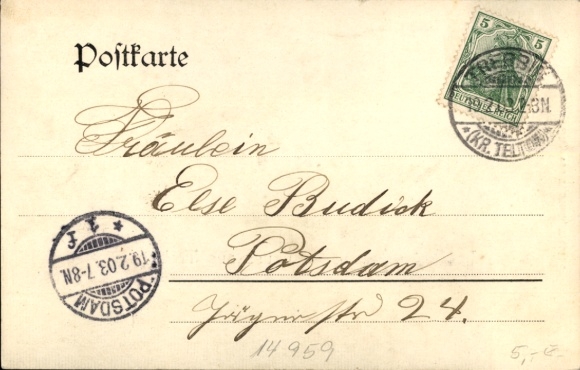 Postkarte
5 5
DEUTSCHES REICH
TREBBIN
(KR. TELTOW)
Fräulein
Else Budick
Potsdam
Jägerstr 24.
POTSDAM
19.2.03.7-8N.
* 1 f
14959
5,-